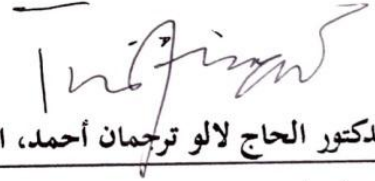 دكتور الحاج لالو ترجمان أحمد، ا